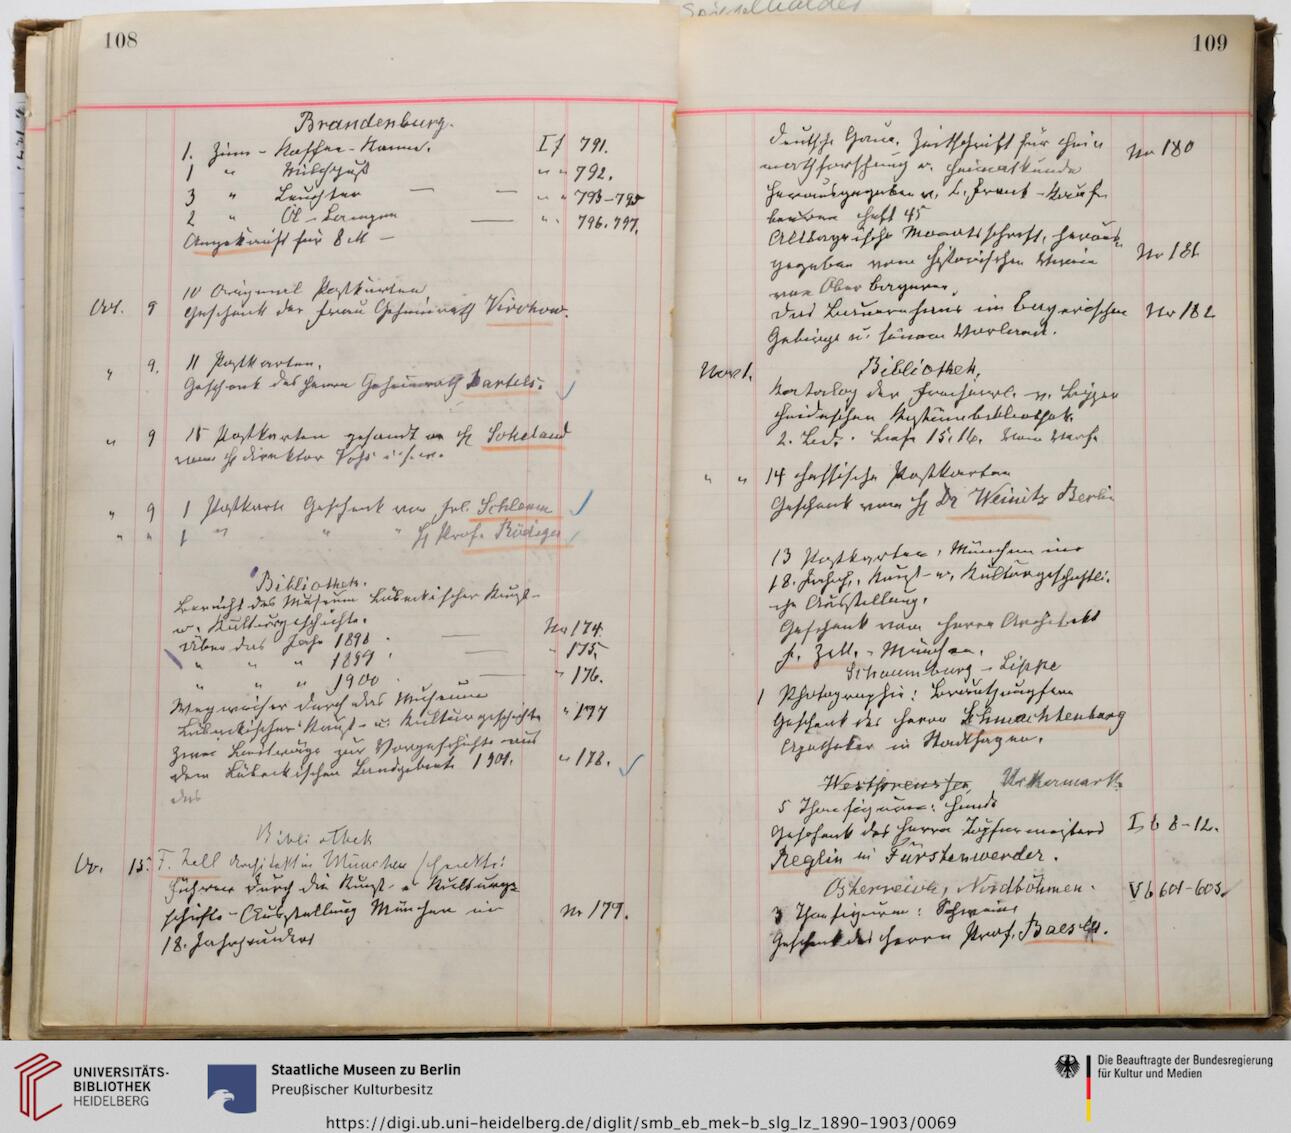 108
Brandenburg.
1. Zinn-Kaffee-Kanne. I f 791.
1 " Milchguß " " 792.
3 " Leuchter — — " " 793-795
2 " Öl-Lampen — " " 796. 797.
Angekauft für 8 M —
10 Original Postkarten
Oct. 9 Geschenk der Frau Geheimrath Virchow.
" 9. 11 Postkarten.
Geschenk des Herrn Geheimrath Bartels.
" 9 15 Postkarten gesandt an H Sökeland
vom H Direktor
" 9 1 Postkarte Geschenk von Frl. Schlemm
" " 1 " " " H Prof. Rüdiger
Bibliothek.
Bericht des Museum Lübeckischer Kunst-
u. Kulturgeschichte.
über das Jahr 1898. — No 174.
" " " 1899. " 175.
" " " 1900. — " 176.
Wegweiser durch das Museum
Lübeckischer Kunst- u. Kulturgeschichte " 177
Zwei Beiträge zur Vorgeschichte aus
dem Lübeckischen Landgebiete 1901. " 178.
das
Bibliothek
Oc. 15. F. Zell Architekt in München schenkte:
Führer durch die Kunst- u Kulturge-
schichts-Ausstellung München im No 179.
18. Jahrhundert
Spiegelhalder
109
Deutsche Gaue. Zeitschrift für Hei- No 180
mathforschung u. Heimatkunde
herausgegeben v. C. Frank-Kauf-
beuren Heft 45
Altbayrische Monatsschrift, heraus-
gegeben vom historischen Verein No 181
von Ober bayern.
Das Bauernhaus im bayerischen No 182
Gebirge u. seinem Vorland.
Nov. 1. Bibliothek.
Katalog der Freiherrl. v. Lipper-
heideschen Kostümbibliothek.
2. Bd. Lief. 15. 16. Vom Verf.
" " 14 hessische Postkarten
Geschenk vom H Dr Weinitz Berlin
13 Postkarten, München im
18. Jahrh., Kunst- u. Kulturgeschichtli-
che Ausstellung.
Geschenk vom Herrn Architekt
F. Zell. - München.
Schaumburg-Lippe
1 Photographie: Brautjungfern
Geschenk des Herrn Schmachtenberg
Apotheker in Stadthagen.
Westpreussen Uckermark.
5 Thonfiguren: Hunde
Geschenk des Herrn Töpfermeisters I b 8-12.
Reglin in Fürstenwerder.
Österreich, Nordböhmen. V b 601-603
3 Thonfiguren: Schweine
Geschenk des Herrn Prof. Baessler.
UNIVERSITÄTS-
BIBLIOTHEK
HEIDELBERG
Staatliche Museen zu Berlin
Preußischer Kulturbesitz
Die Beauftragte der Bundesregierung
für Kultur und Medien
https://digi.ub.uni-heidelberg.de/diglit/smb_eb_mek-b_slg_lz_1890-1903/0069